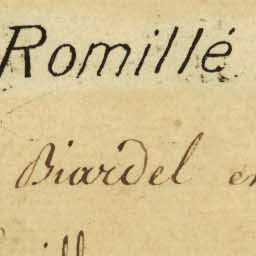 Romillé
Biardel en